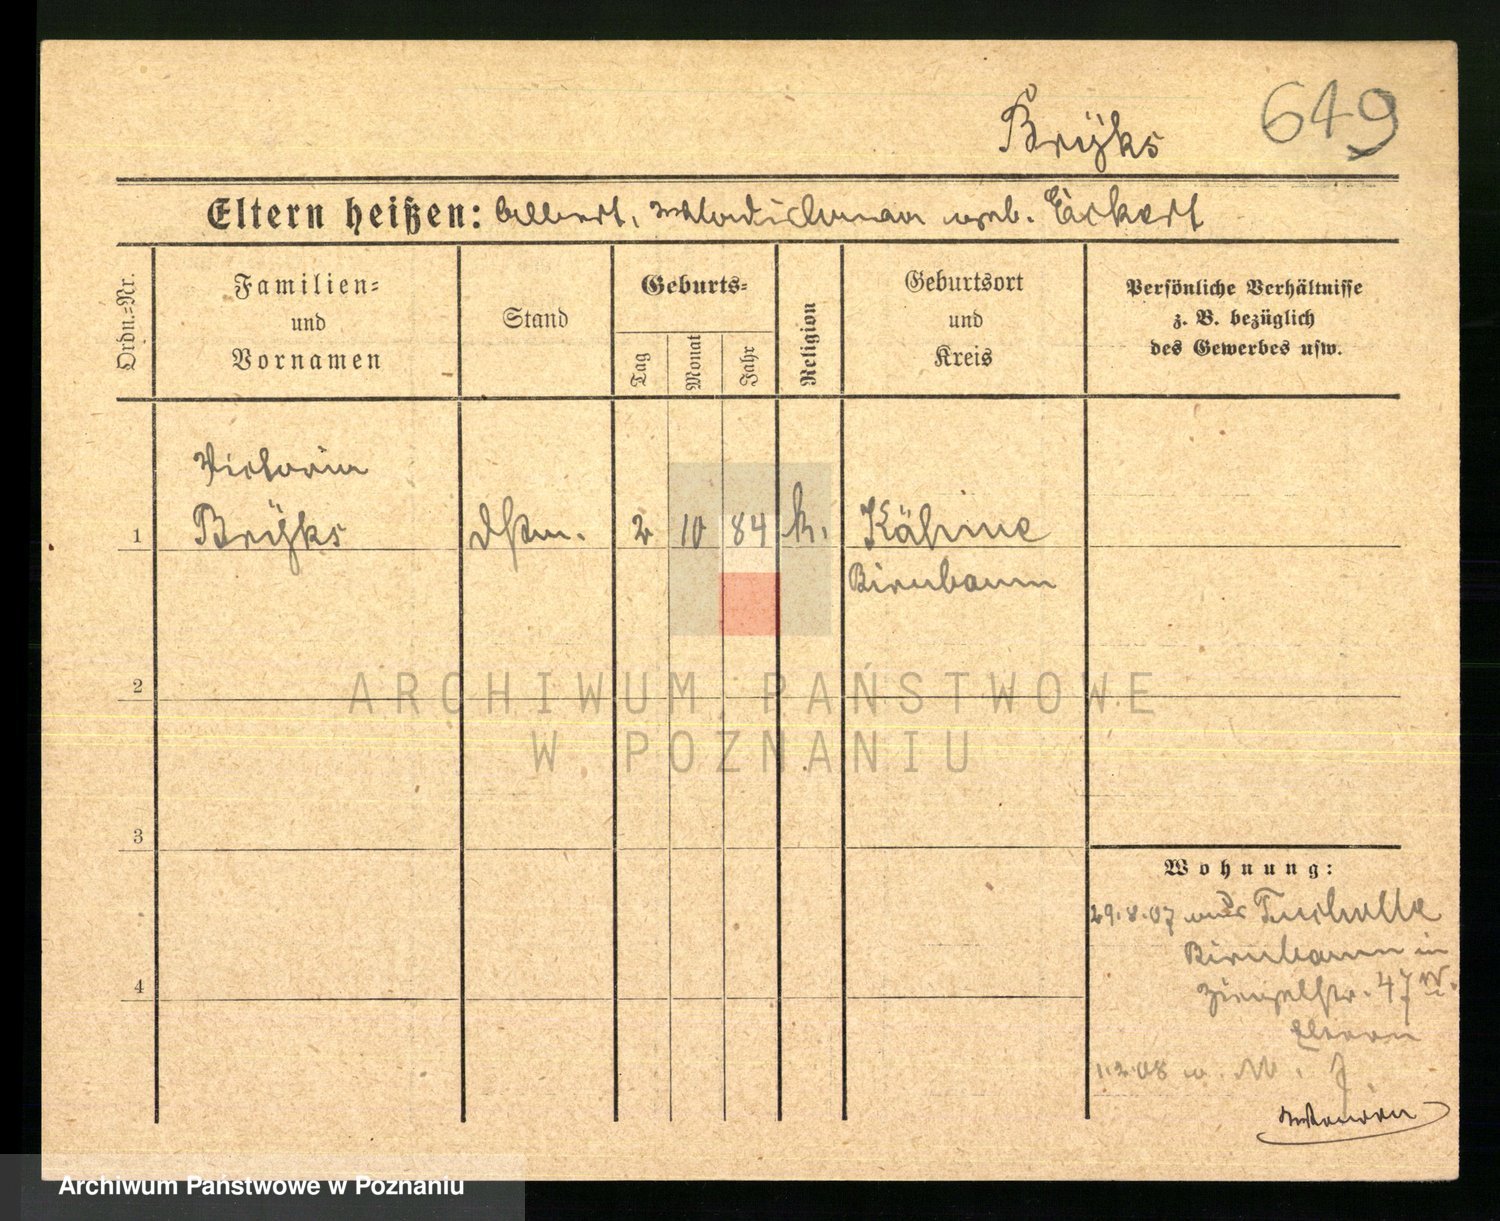 649
Brÿks
Eltern heißen: Albert, Wladislawa geb. Eckert
Ordn.-Nr.
Familien-
und
Vornamen
Stand
Geburts-
Tag
Monat
Jahr
Religion
Geburtsort
und
Kreis
Persönliche Verhältnisse
z. B. bezüglich
des Gewerbes usw.
Victoria
1 Brÿks 2 10 84 k. Kähme
Birnbaum
2
ARCHIWUM PAŃSTWOWE
W POZNANIU
3
Wohnung:
29.8.07 aus
Birnbaum in
4
Ziegelstr. 47
Eltern
1.2.08
Archiwum Państwowe w Poznaniu